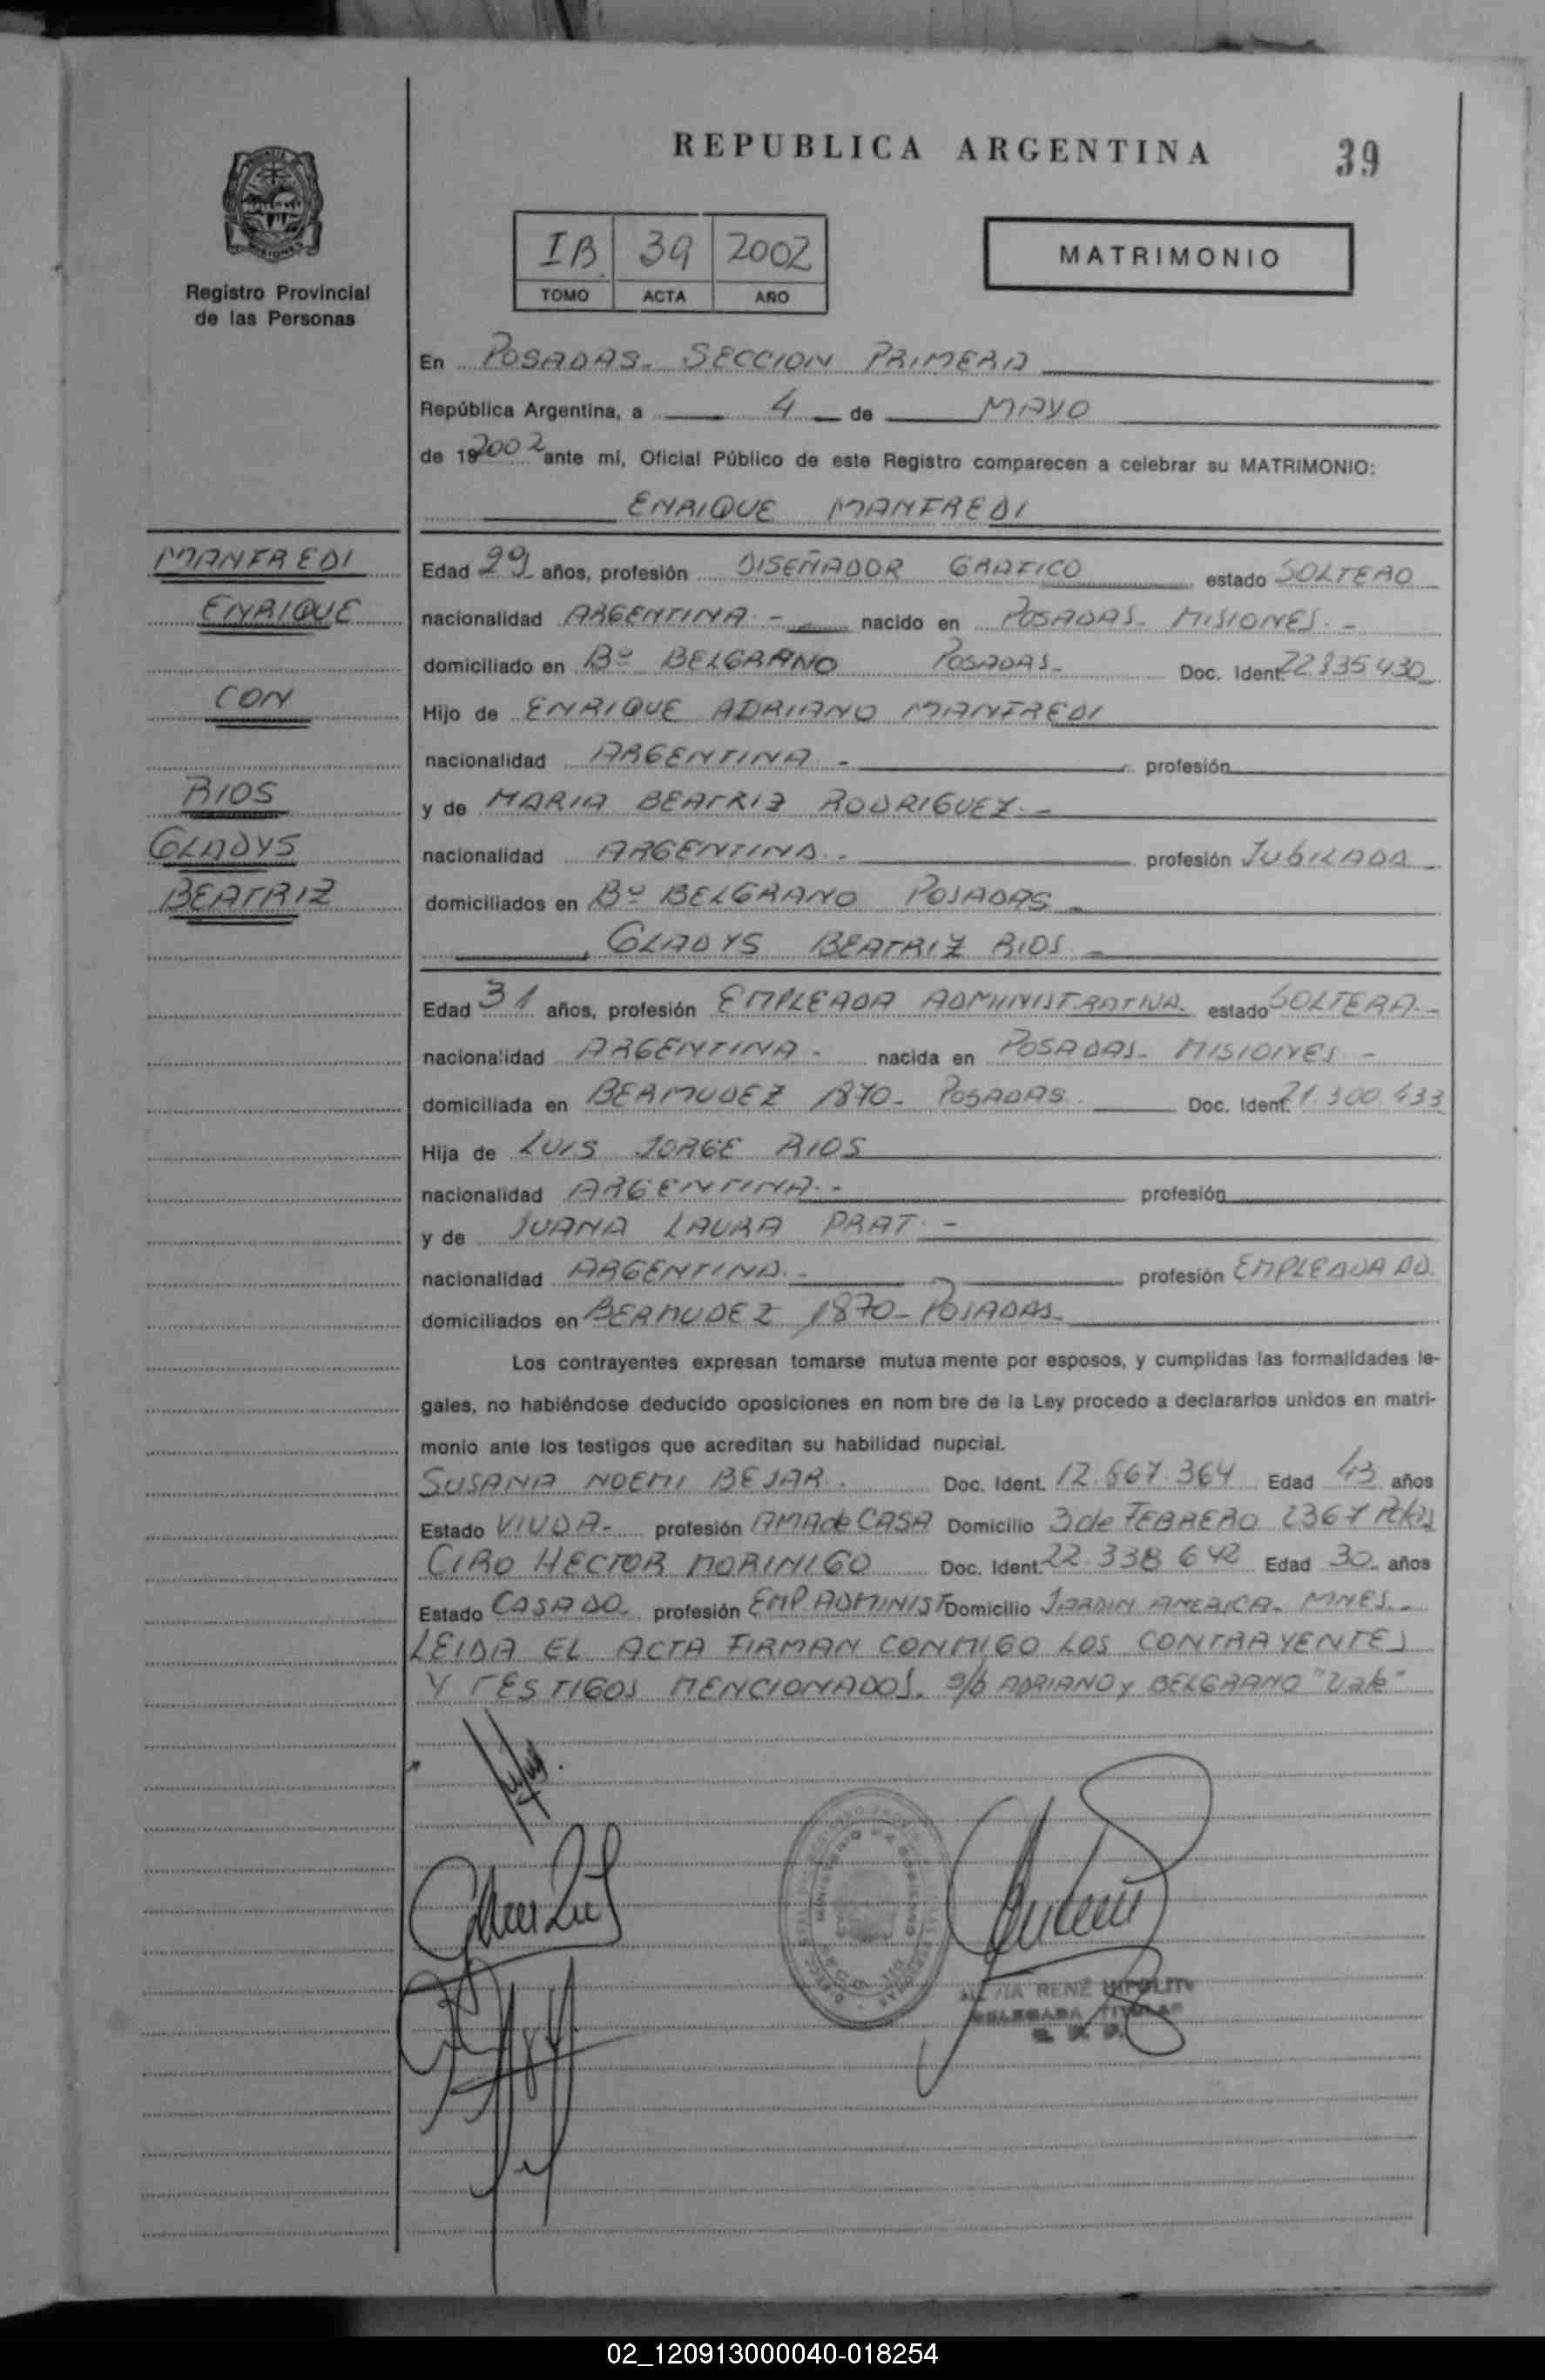 REPUBLICA ARGENTINA
39
IB 39 2002
TOMO ACTA AÑO
MATRIMONIO
MISIONES
Registro Provincial
de las Personas
En POSADAS. SECCION PRIMERA
República Argentina, a 4 de MAYO
de 192002 ante mi, Oficial Público de este Registro comparecen a celebrar su MATRIMONIO:
ENRIQUE MANFREDI
MANFREDI
ENRIQUE
CON
RIOS
GLADYS
BEATRIZ
Edad 29 años, profesión DISEÑADOR GRAFICO estado SOLTERO
nacionalidad ARGENTINA - nacido en POSADAS - MISIONES. -
domiciliado en Bº BELGRANO POSADAS - Doc. Ident. 22.835430
Hijo de ENRIQUE ADRIANO MANFREDI
nacionalidad ARGENTINA - profesión
y de MARIA BEATRIZ RODRIGUEZ. -
nacionalidad ARGENTINA. - profesión JUBILADA
domiciliados en Bº BELGRANO POSADAS -
GLADYS BEATRIZ RIOS -
Edad 31 años, profesión EMPLEADA ADMINISTRATIVA. estado SOLTERA. -
nacionalidad ARGENTINA - nacida en POSADAS - MISIONES -
domiciliada en BERMUDEZ 1870 - POSADAS. Doc. Ident. 21.300.433
Hija de LUIS JORGE RIOS
nacionalidad ARGENTINA. - profesión
y de JUANA LAURA PRAT. -
nacionalidad ARGENTINA. - profesión EMPLEADA AD.
domiciliados en BERMUDEZ 1870 - POSADAS -
Los contrayentes expresan tomarse mutua mente por esposos, y cumplidas las formalidades le-
gales, no habiéndose deducido oposiciones en nom bre de la Ley procedo a declararlos unidos en matri-
monio ante los testigos que acreditan su habilidad nupcial.
SUSANA NOEMI BEJAR. Doc. Ident. 12.667.364 Edad 43 años
Estado VIUDA - profesión AMA de CASA Domicilio 3 de FEBRERO 2367
CIRO HECTOR MORINIGO Doc. Ident. 22.338642 Edad 30 años
Estado CASADO. profesión EMP. ADMINIST Domicilio JARDIN AMERICA - MNES. -
LEIDA EL ACTA FIRMAN CONMIGO LOS CONTRAYENTES
Y TESTIGOS MENCIONADOS. s/b ADRIANO y BELGRANO "Vale"
RENÉ HIPOLIT
DELEGADA TITULAR
02_120913000040-018254